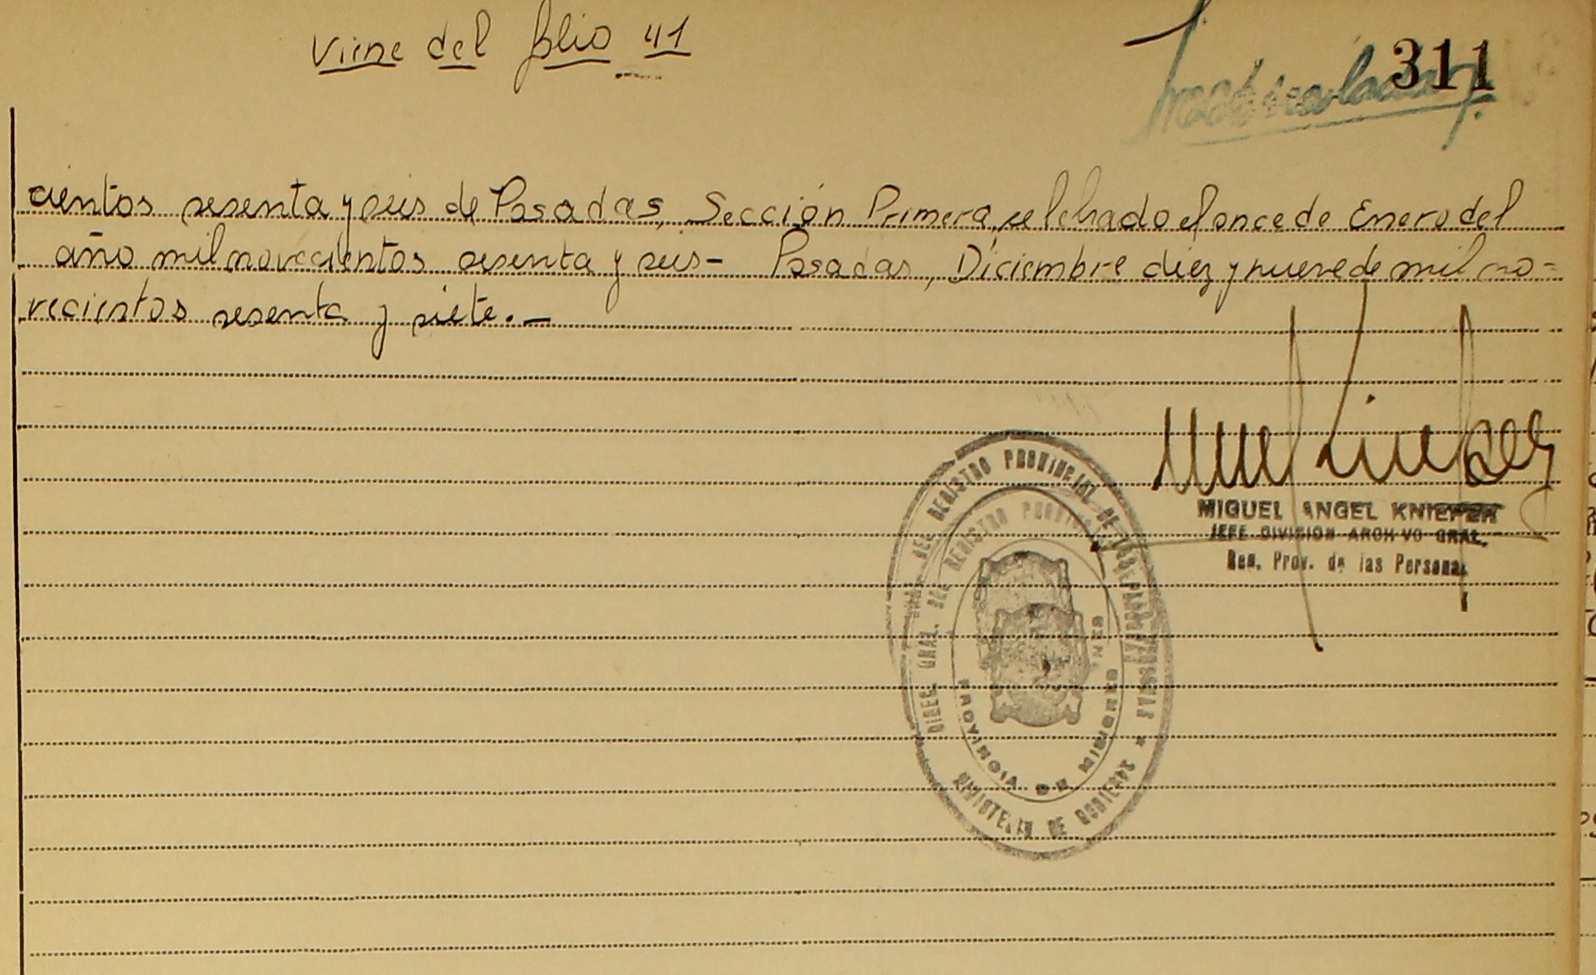 Viene del folio 41
311
cientos sesenta y seis de Posadas, Sección Primera, celebrado el once de Enero del
año mil novecientos sesenta y seis- Posadas, Diciembre diez y nueve de mil no=
vecientos sesenta y siete.-
MIGUEL ANGEL KNIEPER
JEFE DIVISION ARCHIVO GRAL.
Reg. Prov. de las Personas
DIREC. GRAL. DEL REGISTRO PROVINCIAL DE LAS PERSONAS
MINISTERIO DE GOBIERNO
PROVINCIA DE MISIONES